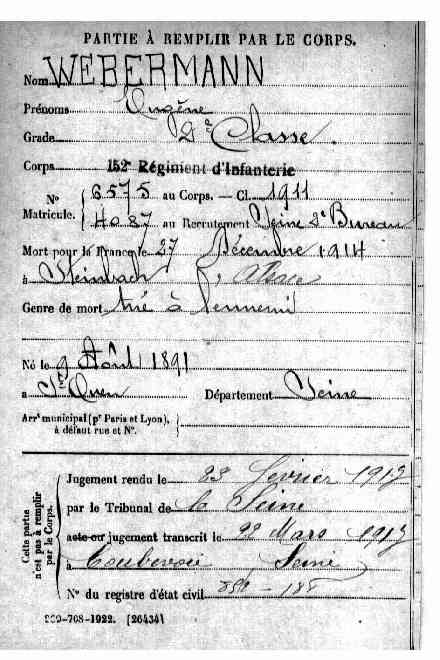 PARTIE À REMPLIR PAR LE CORPS.
Nom WEBERMANN
Prénoms Eugène
Grade 2e Classe.
Corps 152e Régiment d'Infanterie
No Matricule. 6575 au Corps. — Cl. 1911
4037 au Recrutement Seine 2e Bureau
Mort pour la France le 27 Décembre 1914
à Steinbach Alsace
Genre de mort tué à l'ennemi
Né le 9 Août 1891
a St Ouen Département Seine
Arrt municipal (pr Paris et Lyon),
à défaut rue et No.
Cette partie
n'est pas à remplir
par le Corps.
Jugement rendu le 23 février 1917
par le Tribunal de la Seine
acte ou jugement transcrit le 22 Mars 1917
à Courbevoie Seine
No du registre d'état civil
[26434]